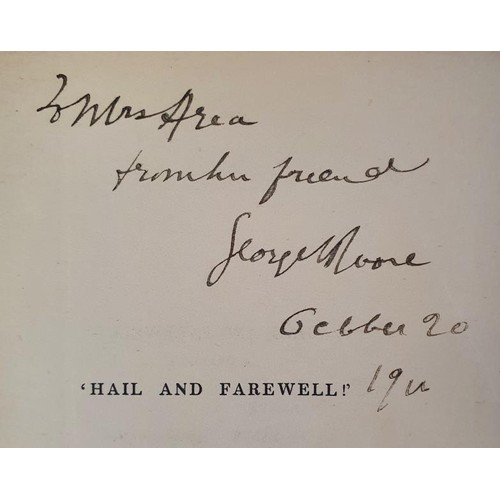 To Mrs Area
from her friend
George Moore
October 20
'HAIL AND FAREWELL!' 1911